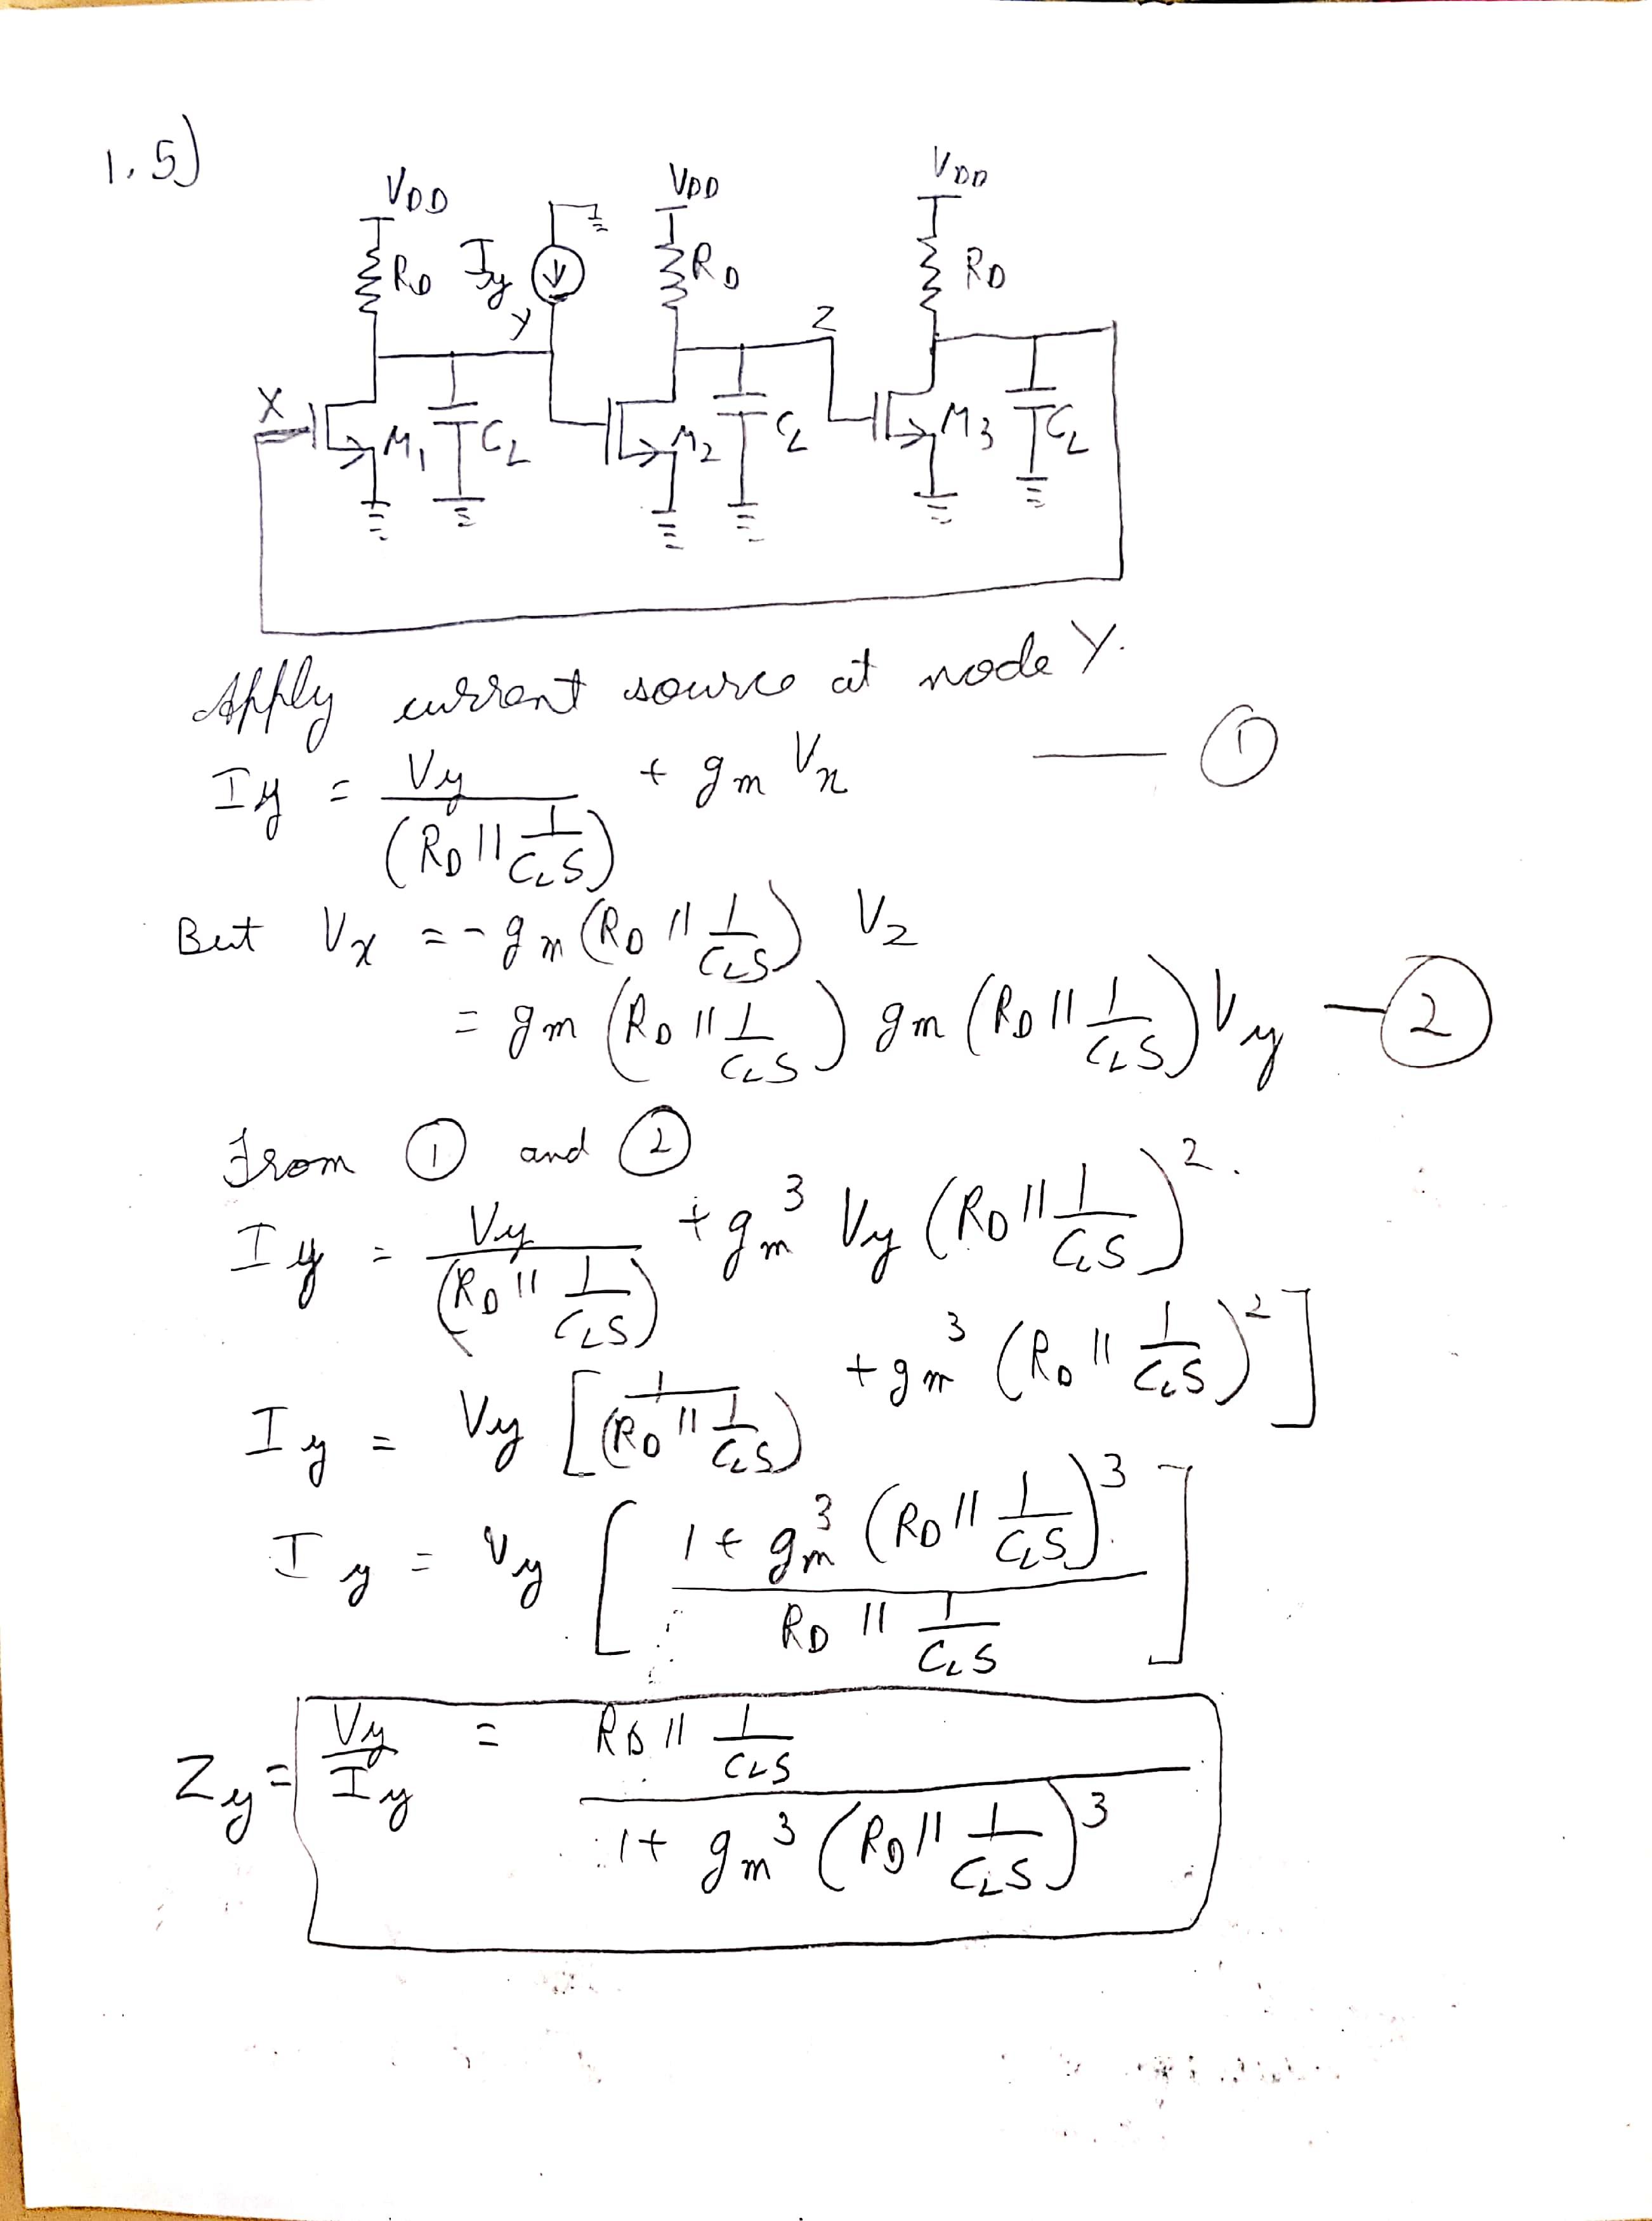 1.5)
VDD VDD VDD
RD Iy RD RD
Y Z
X M1 CL M2 CL M3 CL
Apply current source at node Y.
Iy = Vy / (RD || 1/CLS) + gm Vx —— ①
But Vx = - gm (RD || 1/CLS) Vz
= gm (RD || 1/CLS) gm (RD || 1/CLS) Vy — ②
From ① and ②
Iy = Vy / (RD || 1/CLS) + gm³ Vy (RD || 1/CLS)².
Iy = Vy [ 1 / (RD || 1/CLS) + gm³ (RD || 1/CLS)² ]
Iy = Vy [ 1 + gm³ (RD || 1/CLS)³ / RD || 1/CLS ]
Zy = Vy / Iy = RD || 1/CLS / 1 + gm³ (RD || 1/CLS)³